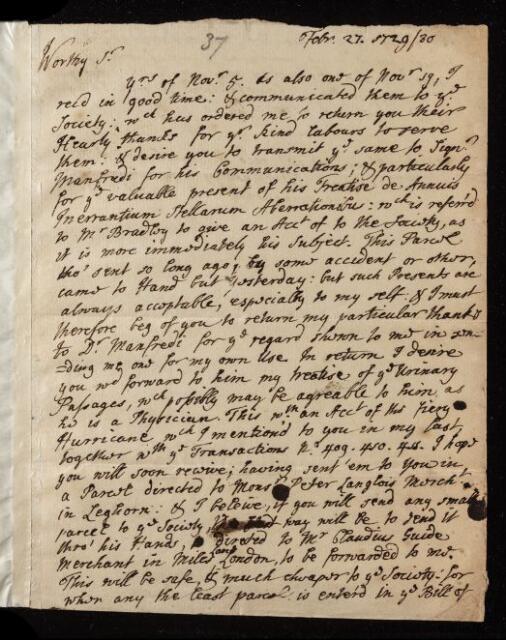 37
Febr. 27. 1729/30
Worthy Sr.
yrs of Novr. 5. as also one of Novr 19, I
recd in good time: & communicated them to ye
Society: wch has ordered me to return you their
Hearty thanks for yr kind labours to serve
them: & desire you to transmit ye same to Signr
Manfredi for his Communications; & particularly
for ye valuable present of his Treatise de Annuis
Inerrantium Stellarum Aberrationibus: wch is refer'd
to Mr Bradley to give an Acct of to the Society, as
it is more immediately his Subject. This Parcel
tho' sent so long ago, by some accident or other,
came to Hand but yesterday: but such Presents are
always acceptable, especially to my self: & I must
therefore beg of you to return my particular thanks
to Dr Manfredi for ye regard shewn to me in sen-
=ding me one for my own use. In return I desire
you wd forward to him my treatise of ye Urinary
Passages, wch possibly may be agreeable to him, as
he is a Physician. This wth an Acct of the fiery
Hurricane wch I mention'd to you in my last,
together wth ye Transactions No. 409. 410. 411. I hope
you will soon receive; having sent 'em to you in
a Parcel directed to Monsr Peter Langlois Mercht
in Leghorn: & I beleive, if you will send any small
parcel to ye Society, the best way will be to send it
thro' his Hands, directed to Mr Claudius Guide
Merchant in Miles Lane London, to be forwarded to me.
This will be safe, & much cheaper to ye Society: for
when any the least parcel is enterd in ye Bill of